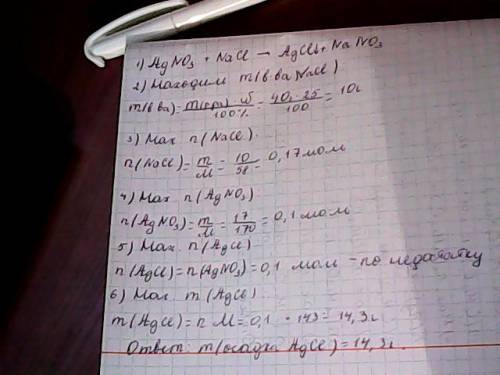 1) AgNO3 + NaCl → AgCl↓ + NaNO3
2) Находим m(в-ва NaCl)
m(в-ва) = m(р-ра) · ω / 100% = 40г · 25 / 100 = 10г
3) Нах. n(NaCl).
n(NaCl) = m / M = 10 / 58 = 0,17 моль
4) Нах. n(AgNO3)
n(AgNO3) = m / M = 17 / 170 = 0,1 моль
5) Нах. n(AgCl)
n(AgCl) = n(AgNO3) = 0,1 моль – по недостатку
6) Нах. m(AgCl)
m(AgCl) = n · M = 0,1 · 143 = 14,3г
Ответ: m(осадка AgCl) = 14,3г.